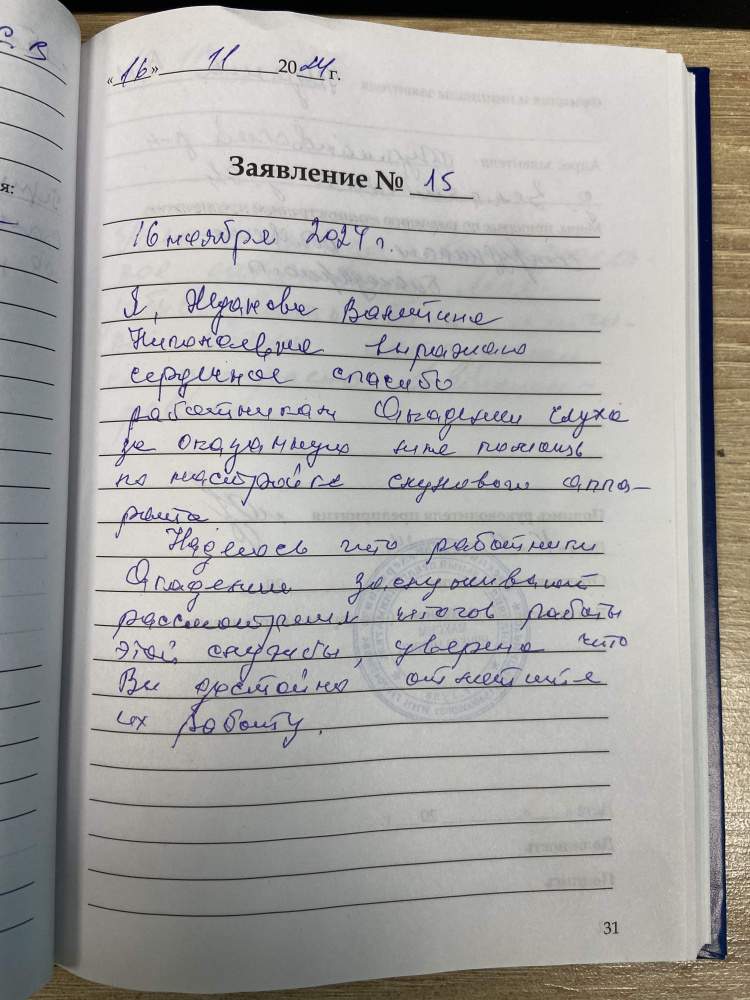 «16» 11 2024 г.
Заявление № 15
16 ноября 2024 г.
Я, Жданова Валентина
Николаевна выражаю
сердечное спасибо
работникам Академии слуха
за оказанную мне помощь
по настройке слухового аппа-
рата
Надеюсь что работники
Академии заслуживают
рассмотрения итогов работы
этой службы, уверена что
Вы достойно отметите
их работу.
31